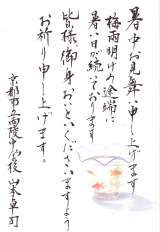 暑中お見舞い申し上げます
梅雨明けの途端に
暑い日が続いております
皆様、御身おいといくださいますよう
お祈り申し上げます。
京都市立高陵中
卓司